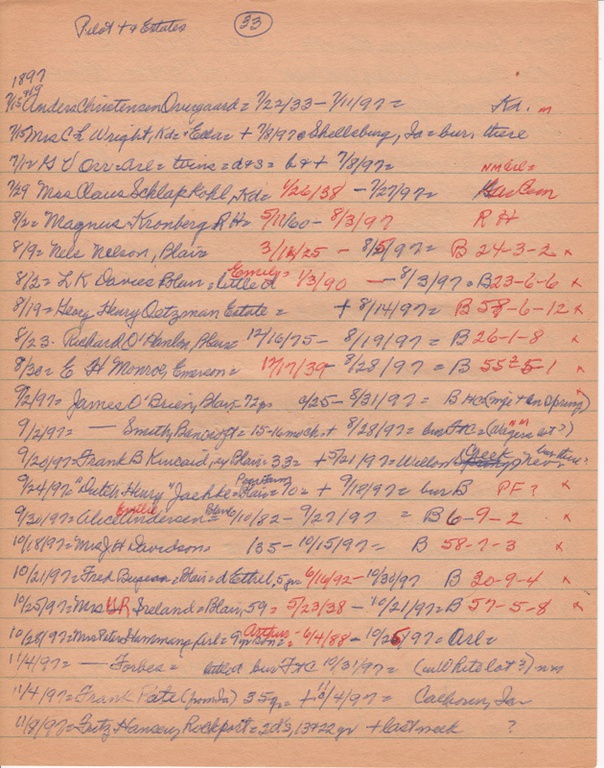 Pilot + & Estates 33
1897
7/15 Anders Christensen Overgaard = 7/22/33 - 7/11/97 = Kd. m
7/15 Mrs C L Wright, Kd = Edda = + 7/8/97 @ Shellsburg, Ia = bur. there
7/12 G V Orr = Arl = twins = d + s = b + + 7/8/97 = NM Arl =
7/29 Mrs Claus Schlapkohl, Kd = 1/26/38 - 7/27/97 =
8/2 = Magnus Kronberg R H = 5/11/60 - 8/3/97 R H
8/9 = Nels Nelson, Blair = 3/12/25 - 8/5/97 = B 24-3-2 x
8/2 = L K Davies Blair, = little d Emily = 1/3/90 - 8/3/97 = B 23-6-6 x
8/19 = Georg Henry Oetzman Estate = + 8/14/97 = B 58-6-12 x
8/23 - Richard O'Hanlon, Blair = 12/16/75 - 8/19/97 = B 26-1-8 x
8/30 = E H Monroe, Emerson = 12/17/39 - 8/28/97 = B 55²-5-1 x
9/2/97 = James O'Brien, Blair, 72 yrs 0/25 - 8/31/97 = B H C
9/2/97 = - Smith, Bancroft = 15-16 mo ch + 8/28/97 = bur F + C =
9/20/97 = Frank B Kincaid, ey Blair = 33 = + 5/21/97 = Willow Creek Nev = bur there
9/24/97 = "Dutch Henry" Jaehke = Blair = 70 = + 9/18/97 = bur B PF?
9/30/97 = Alice Emilie Andersen = Blair 6/10/82 - 9/27/97 = B 6-9-2 x
10/18/97 = Mrs J H Davidson = /35 - 10/15/97 = B 58-7-3 x
10/21/97 = Fred = Blair = d Ethel, 5 yr = 6/16/92 - 10/30/97 B 30-9-4 x
10/25/97 = Mrs U R Ireland = Blair, 59 = 5/23/38 - 10/21/97 = B 57-5-8 x
10/28/97 = Mrs Peter Hammang Arl = 9 yr son = Arthur - 6/4/88 - 10/25/97 = Arl =
11/4/97 = - Forbes = bur F + C 10/31/97 = nm
11/4/97 = Frank Pate (from Ia) 35 yr = + 11/4/97 = Calhoun, Ia
11/8/97 = Fritz Hansen, Rockport = 2 d's, 13 + 22 yr + last week ?